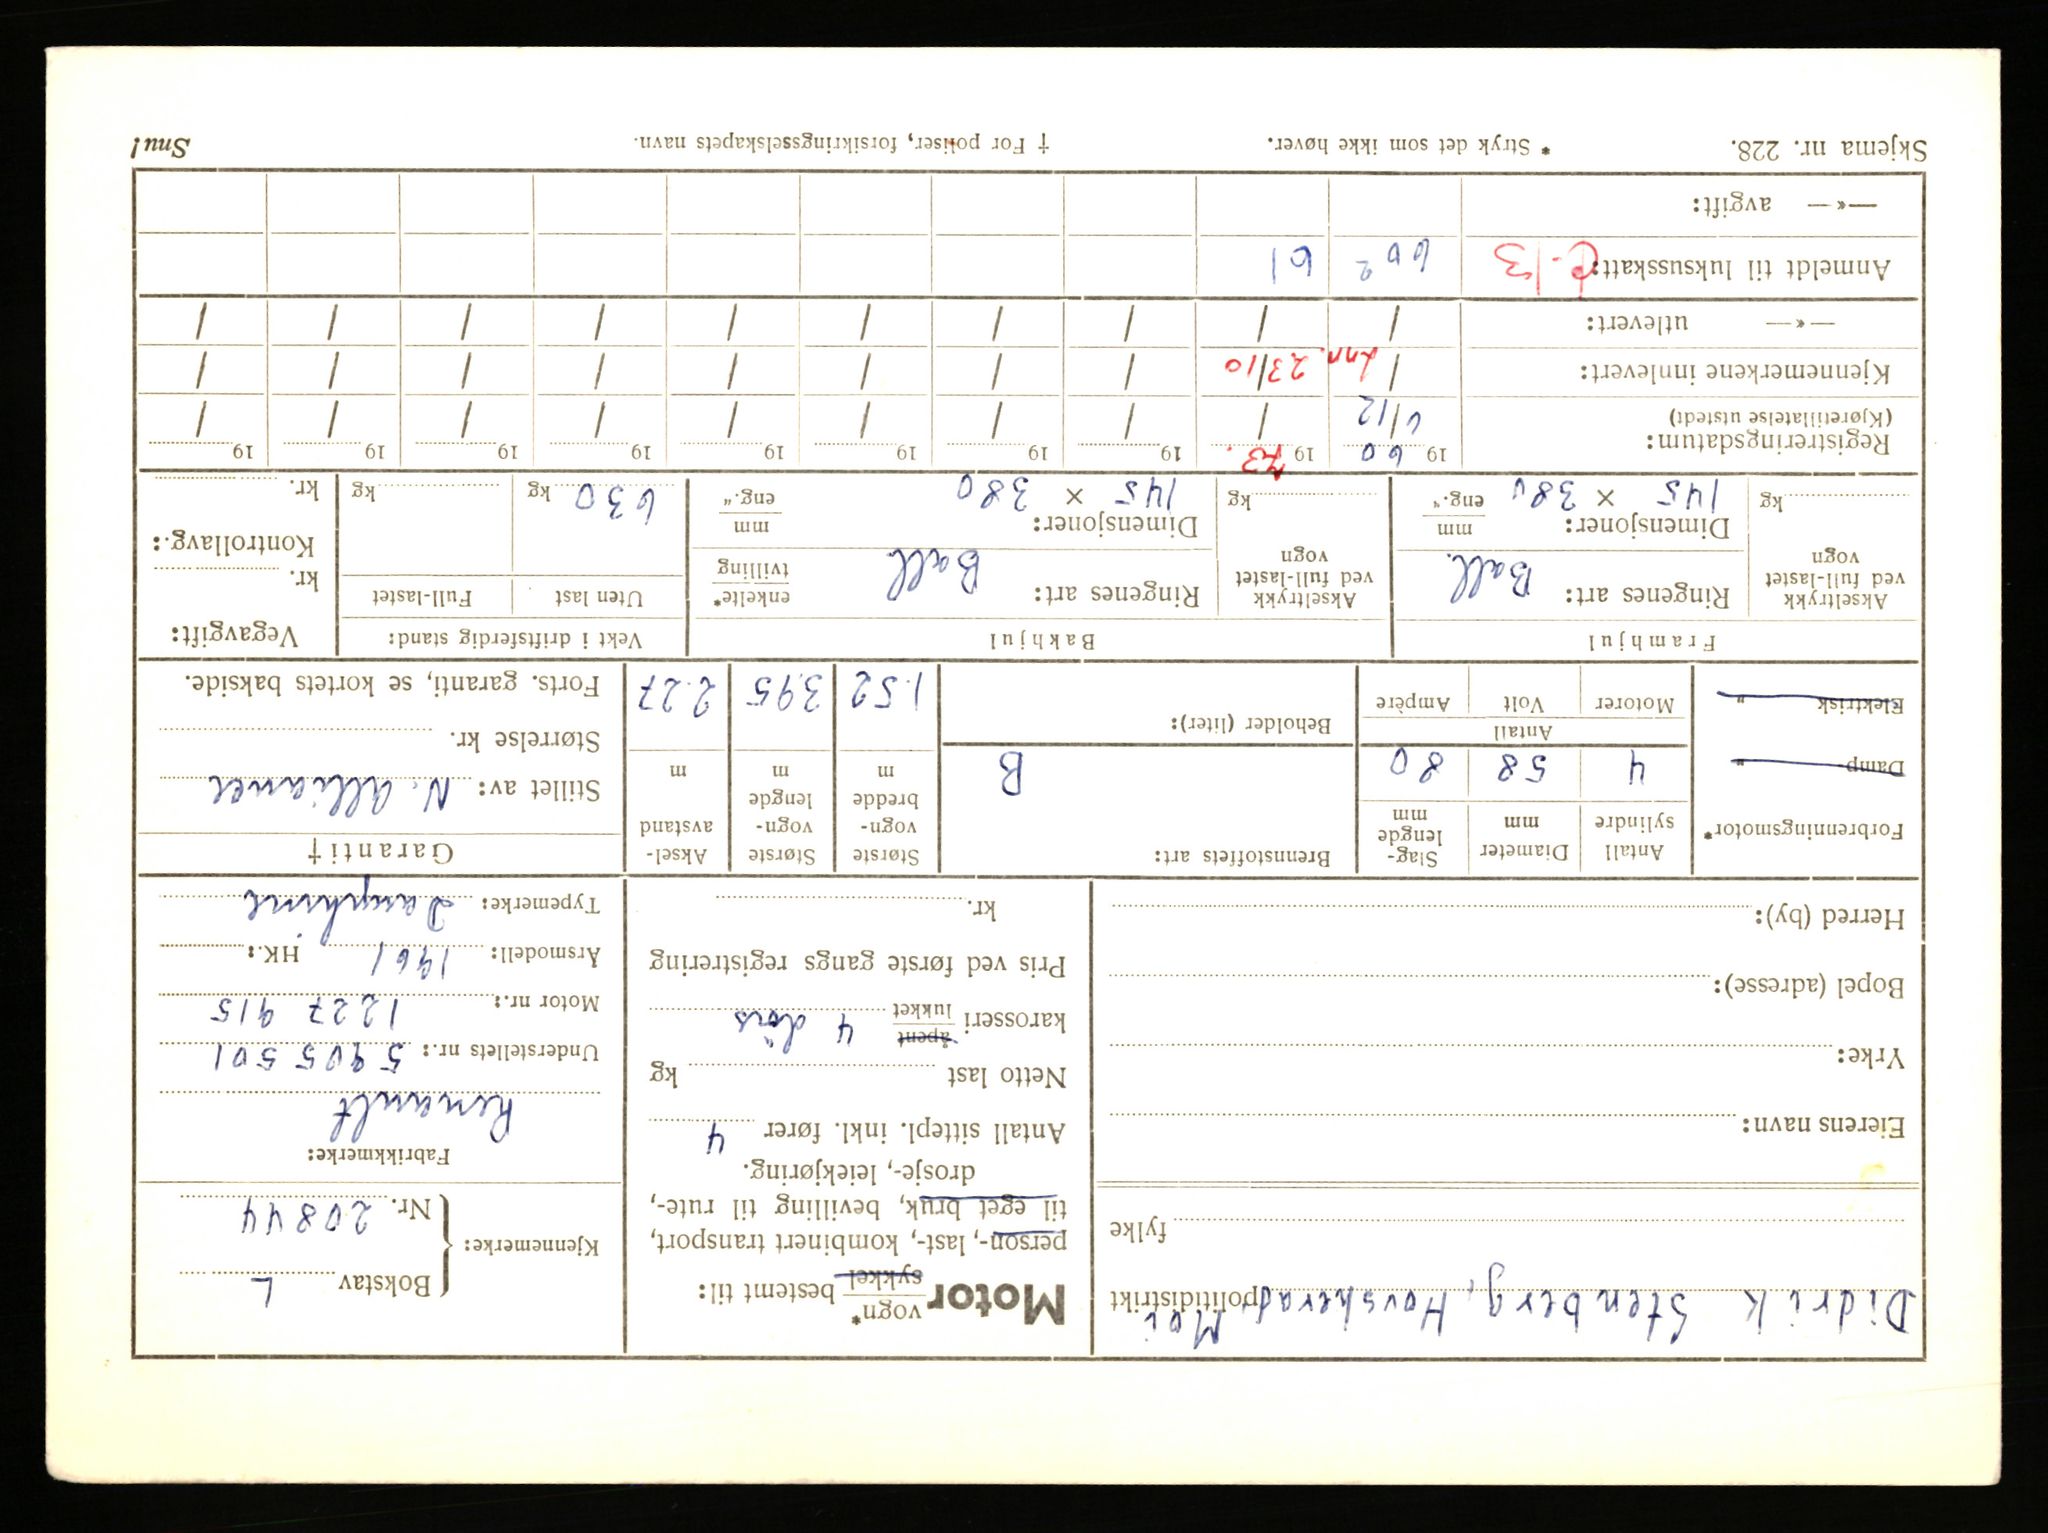 Didrik Stenberg, Hovsherad, Moi
politidistrikt
fylke
Eierens navn:
Yrke:
Bopel (adresse):
Herred (by):
Motor vogn* sykkel bestemt til:
person-, last-, kombinert transport,
til eget bruk, bevilling til rute-,
drosje-, leiekjøring.
Antall sittepl. inkl. fører 4
Netto last kg
karosseri åpent lukket 4 dörs
Pris ved første gangs registrering
kr.
Kjennemerke: Bokstav L
Nr. 20844
Fabrikkmerke:
Renault
Understellets nr.: 5905501
Motor nr.: 1227915
Årsmodell: 1961 HK.:
Typemerke: Dauphine
Forbrenningsmotor*
Damp- „
Elektrisk „
Antall sylindre
Diameter mm
Slaglengde mm
4 58 80
Antall
Motorer Volt Ampère
Brennstoffets art:
B
Beholder (liter):
Største vognbredde m
1.52
Største vognlengde m
3.95
Akselavstand m
2.27
Garanti †
Stillet av: N. Alliance
Størrelse kr.
Forts. garanti, se kortets bakside.
Framhjul
Akseltrykk ved full-lastet vogn
kg
Ringenes art: Ball.
Dimensjoner: mm eng.“
145 × 380
Bakhjul
Akseltrykk ved full-lastet vogn
kg
Ringenes art: Ball. enkelte* tvilling
Dimensjoner: mm eng.“
145 × 380
Vekt i driftsferdig stand:
Uten last Full-lastet
630 kg kg
Vegavgift:
kr.
Kontrollavg.:
kr.
Registreringsdatum:
(Kjøretillatelse utstedt)
1960 1973. 19 19 19 19 19 19 19 19
6/12 / / / / / / / / /
Kjennemerkene innlevert: / 23/10 / / / / / / / /
—«— utlevert: / / / / / / / / / /
Anmeldt til luksusskatt: 602 61
—«— avgift:
Skjema nr. 228. * Stryk det som ikke høver. † For poliser, forsikringsselskapets navn. Snu!